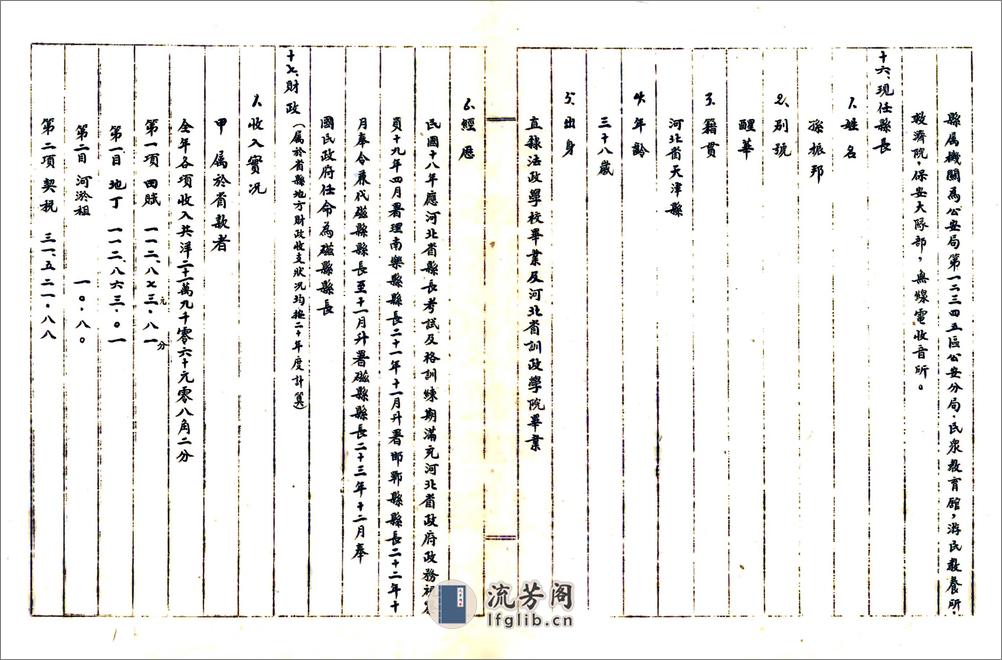 縣屬機關為公安局第一二三四五區公安分局，民眾教育館，游民教養所，
救濟院，保安大隊部，無線電收音所。
十六、現任縣長
1、姓名
孫振邦
2、別號
醒華
3、籍貫
河北省天津縣
4、年齡
三十八歲
5、出身
直隸法政學校畢業及河北省訓政學院畢業
6、經歷
民國十八年應河北省縣長考試及格訓練期滿充河北省政府政務視察
員十九年四月署理南樂縣縣長二十一年十一月升署邯鄲縣縣長二十二年十
月奉令兼代磁縣縣長至十一月升署磁縣縣長二十三年十二月奉
國民政府任命為磁縣縣長
十七、財政（屬於省縣地方財政收支狀況均按二十年度計算）
1、收入實況
甲 屬於省款者
全年各項收入共洋二十一萬九千零六十元零八角二分
第一項田賦 一一二、八七三元.八一分
第一目 地丁 一一二、八六三.〇一
第二目 河淤租 一〇.八〇
第二項 契稅 三一、五二一.八八
流芳阁
lfglib.cn